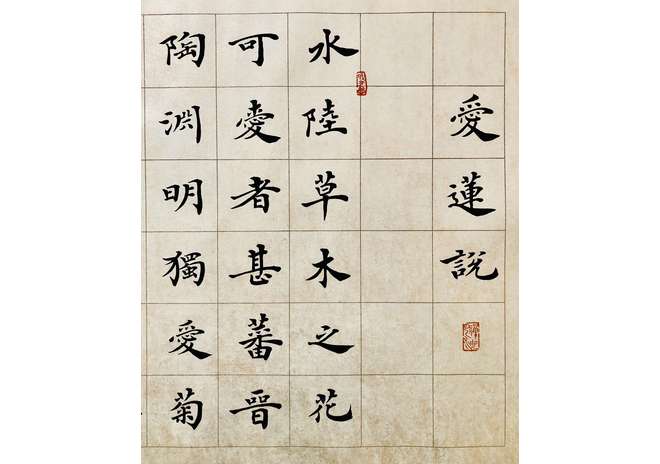 愛蓮説
水陸草木之花
可愛者甚蕃晋
陶淵明獨愛菊